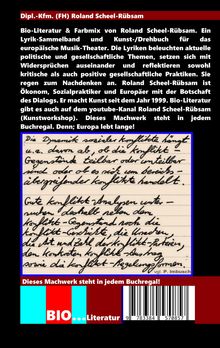 Dipl.-Kfm. (FH) Roland Scheel-Rübsam
Bio-Literatur & Farbmix von Roland Scheel-Rübsam. Ein
Lyrik-Sammelband und Kunst-/Drehbuch für das
europäische Musik-Theater. Die Lyriken beleuchten aktuelle
politische und gesellschaftliche Themen, setzen sich mit
Widersprüchen auseinander und reflektieren sowohl
kritische als auch positive gesellschaftliche Praktiken. Sie
regen zum Nachdenken an. Roland Scheel-Rübsam ist
Ökonom, Sozialpraktiker und Europäer mit der Botschaft
des Dialogs. Er macht Kunst seit dem Jahr 1999. Bio-Literatur
gibt es auch auf dem youtube-Kanal Roland Scheel-Rübsam
(Kunstworkshop). Dieses Machwerk steht in jedem
Buchregal. Denn; Europa lebt lange!
Die Dynamik sozialer Konflikte hängt
u.a. davon ab, ob die Konflikt-
Gegenstände teilbar oder unteilbar
sind oder ob es sich um bereichs-
übergreifende Konflikte handelt.
Gute Konflikt-Analysen unter-
suchen deshalb neben dem
Konflikt-Gegenstand auch die
Konflikt-Geschichte, die Ursachen
die Art und Zahl der Konflikt-Parteien,
den konkreten Konflikt-
sowie die Konflikt-Regelungsformen.
vgl. P. Imbusch
Dieses Machwerk steht in jedem Buchregal!
BIO...Literatur
9 783384 570857